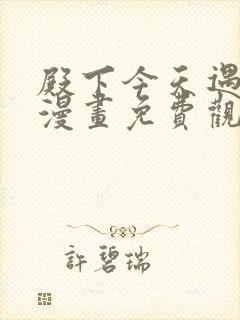 殿下今天遇
漫畫免費觀
許碧瑞